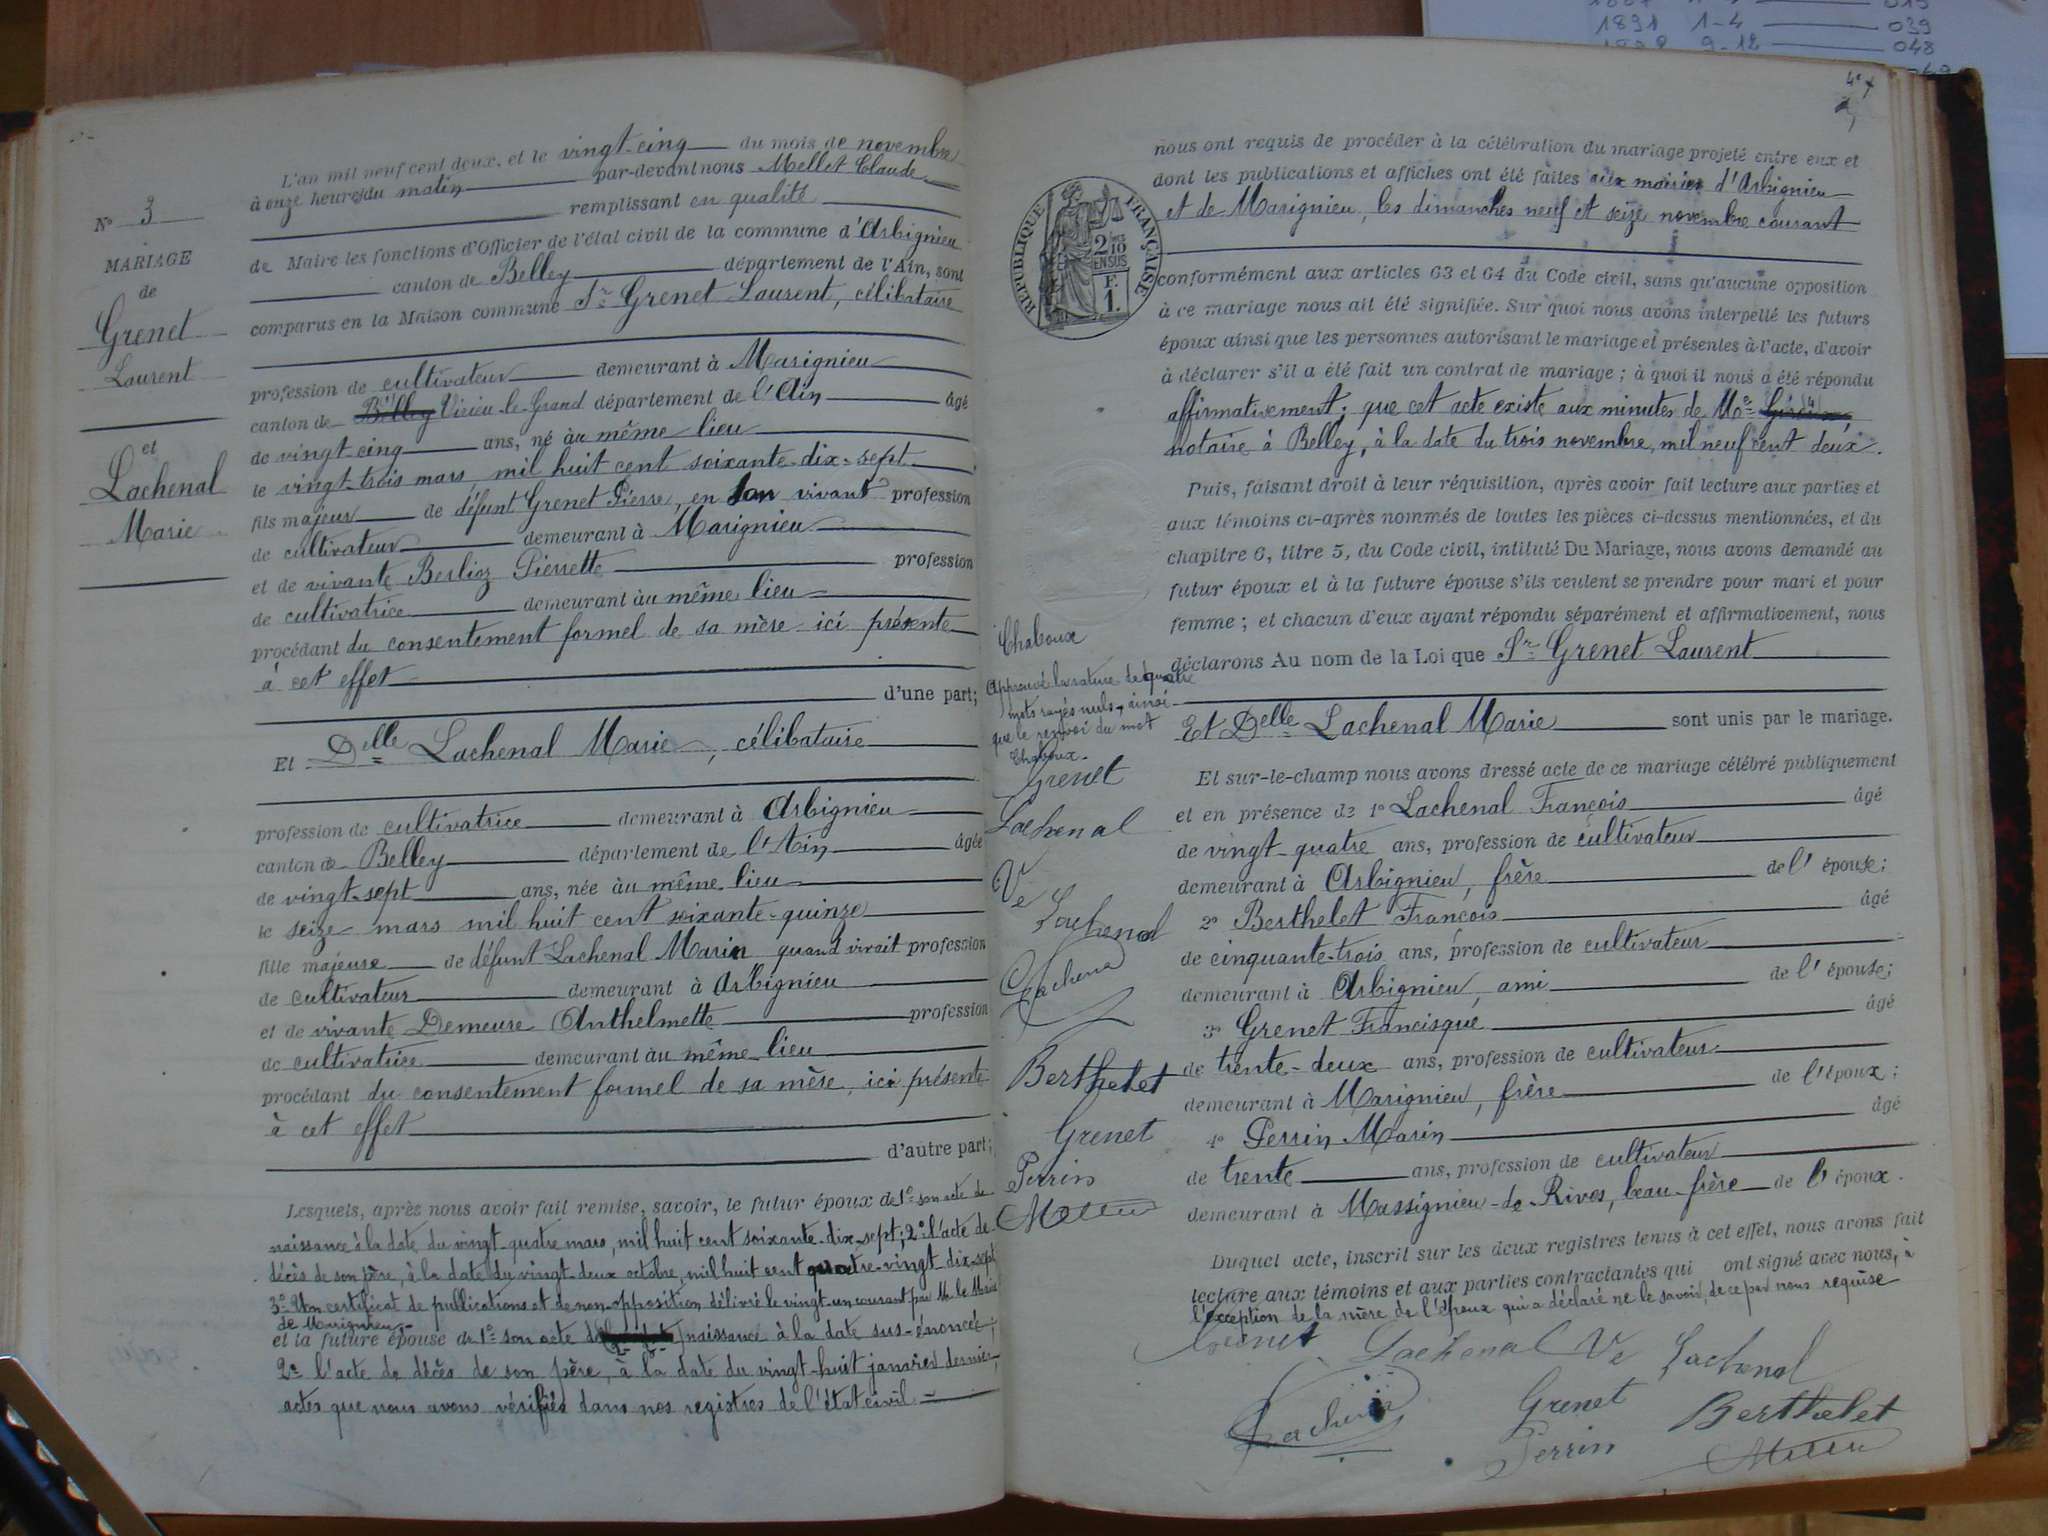 1891 1-4 039
9-12 048
N° 3
MARIAGE
de
Grenet
Laurent
et
Lachenal
Marie
L'an mil neuf cent deux, et le vingt-cinq du mois de novembre
à onze heures du matin par-devant nous Mellet Claude
remplissant en qualité
de Maire les fonctions d'Officier de l'état civil de la commune d'Arbignieu
canton de Belley département de l'Ain, sont
comparus en la Maison commune Sr Grenet Laurent, célibataire
profession de cultivateur demeurant à Marignieu
canton de Belley Virieu-le-Grand département de l'Ain âgé
de vingt cinq ans, né au même lieu
le vingt-trois mars, mil huit cent soixante-dix-sept
fils majeur de défunt Grenet Pierre, en son vivant profession
de cultivateur demeurant à Marignieu
et de vivante Berlioz Pierrette profession
de cultivatrice demeurant au même lieu
procédant du consentement formel de sa mère ici présente
à cet effet
d'une part;
Et Delle Lachenal Marie, célibataire
profession de cultivatrice demeurant à Arbignieu
canton de Belley département de l'Ain âgée
de vingt-sept ans, née au même lieu
le seize mars mil huit cent soixante-quinze
fille majeure de défunt Lachenal Marin quand vivait profession
de cultivateur demeurant à Arbignieu
et de vivante Demeure Anthelmette profession
de cultivatrice demeurant au même lieu
procédant du consentement formel de sa mère, ici présente
à cet effet
d'autre part;
Lesquels, après nous avoir fait remise, savoir, le futur époux de 1° son acte de
naissance à la date du vingt-quatre mars, mil huit cent soixante-dix-sept; 2° l'acte de
décès de son père, à la date du vingt-deux octobre, mil huit cent quatre-vingt dix-sept
3° Un certificat de publications et de non-opposition délivré le vingt-un courant par M. le Maire
de Marignieu
et la future épouse de 1° son acte de naissance à la date sus-énoncée;
2° l'acte de décès de son père, à la date du vingt-huit janvier dernier,
actes que nous avons vérifiés dans nos registres de l'état civil
4e
nous ont requis de procéder à la célébration du mariage projeté entre eux et
dont les publications et affiches ont été faites aux mairies d'Arbignieu
et de Marignieu, les dimanches neuf et seize novembre courant
RÉPUBLIQUE FRANÇAISE
2/10 EN SUS
1 F.
conformément aux articles 63 et 64 du Code civil, sans qu'aucune opposition
à ce mariage nous ait été signifiée. Sur quoi nous avons interpellé les futurs
époux ainsi que les personnes autorisant le mariage et présentes à l'acte, d'avoir
à déclarer s'il a été fait un contrat de mariage; à quoi il nous a été répondu
affirmativement; que cet acte existe aux minutes de Me
notaire à Belley, à la date du trois novembre, mil neuf cent deux.
Puis, faisant droit à leur réquisition, après avoir fait lecture aux parties et
aux témoins ci-après nommés de toutes les pièces ci-dessus mentionnées, et du
chapitre 6, titre 5, du Code civil, intitulé Du Mariage, nous avons demandé au
futur époux et à la future épouse s'ils veulent se prendre pour mari et pour
femme; et chacun d'eux ayant répondu séparément et affirmativement, nous
déclarons Au nom de la Loi que Sr Grenet Laurent
Et Delle Lachenal Marie sont unis par le mariage.
Et sur-le-champ nous avons dressé acte de ce mariage célébré publiquement
et en présence de 1° Lachenal François âgé
de vingt-quatre ans, profession de cultivateur
demeurant à Arbignieu, frère de l'épouse;
2° Berthelet François âgé
de cinquante-trois ans, profession de cultivateur
demeurant à Arbignieu, ami de l'épouse;
3° Grenet Francisque âgé
de trente-deux ans, profession de cultivateur
demeurant à Marignieu, frère de l'époux;
4° Perrin Marin âgé
de trente ans, profession de cultivateur
demeurant à Massignieu-de-Rives, beau-frère de l'époux.
Duquel acte, inscrit sur les deux registres tenus à cet effet, nous avons fait
lecture aux témoins et aux parties contractantes qui ont signé avec nous, à
l'exception de la mère de l'époux qui a déclaré ne le savoir, de ce par nous requise
Grenet Lachenal Ve Lachenal
Lachenal Grenet Berthelet
Perrin Mellet
Chaboux
Approuvé la rature de quatre
mots rayés nuls, ainsi
que le renvoi du mot
Chaboux.
Grenet
Lachenal
Ve
Lachenal
Lachenal
Berthelet
Grenet
Perrin
Mellet